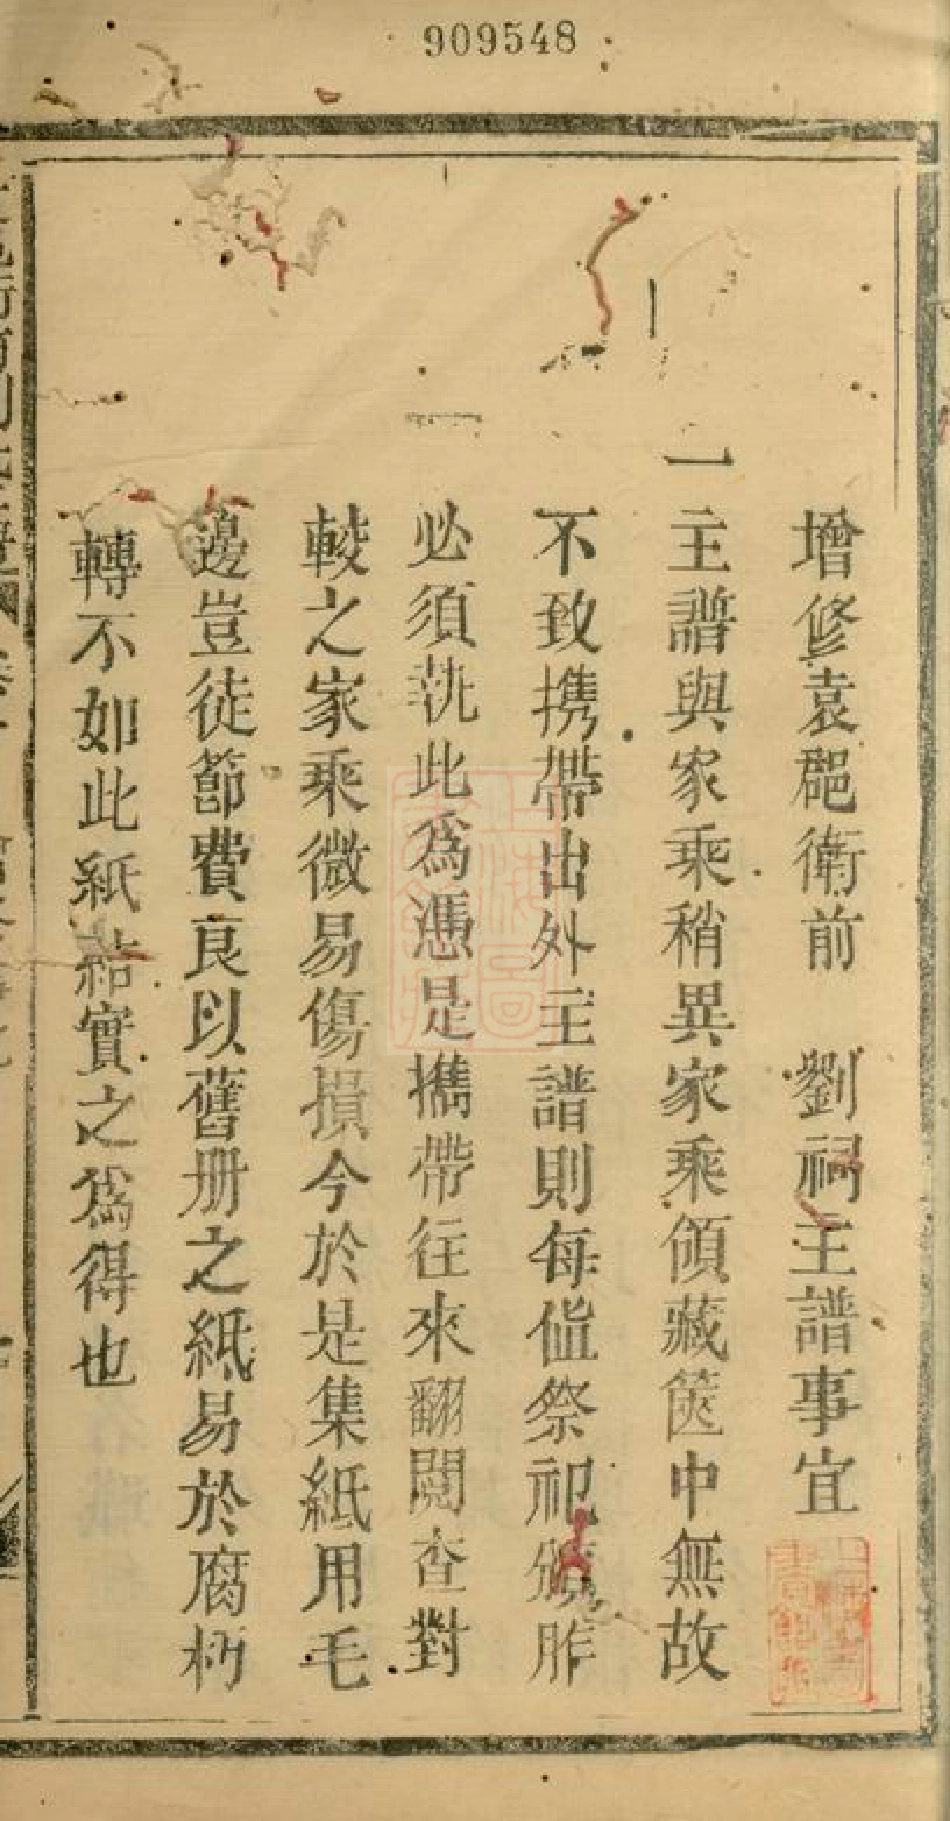 909548
增修袁郡衛前 劉祠主譜事宜
一主譜與家乘稍異家乘領藏篋中無故
不致携帶出外主譜則每值祭祀頒胙
必須執此為憑是攜帶往來翻閱查對
較之家乘微易傷損今於是集紙用毛
邊豈徒節費良以舊册之紙易於腐朽
轉不如此紙結實之為得也
上海圖書館藏